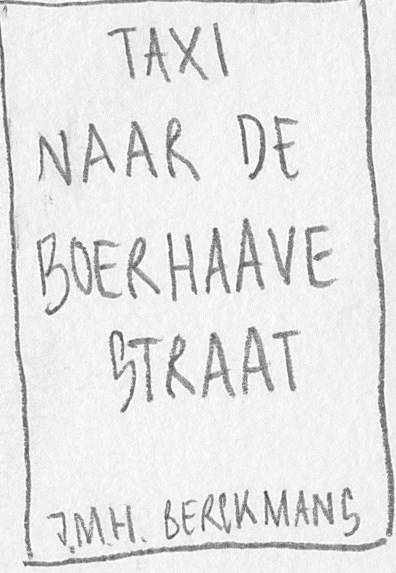 TAXI
NAAR DE
BOERHAAVE
STRAAT
J.M.H. BERCKMANS